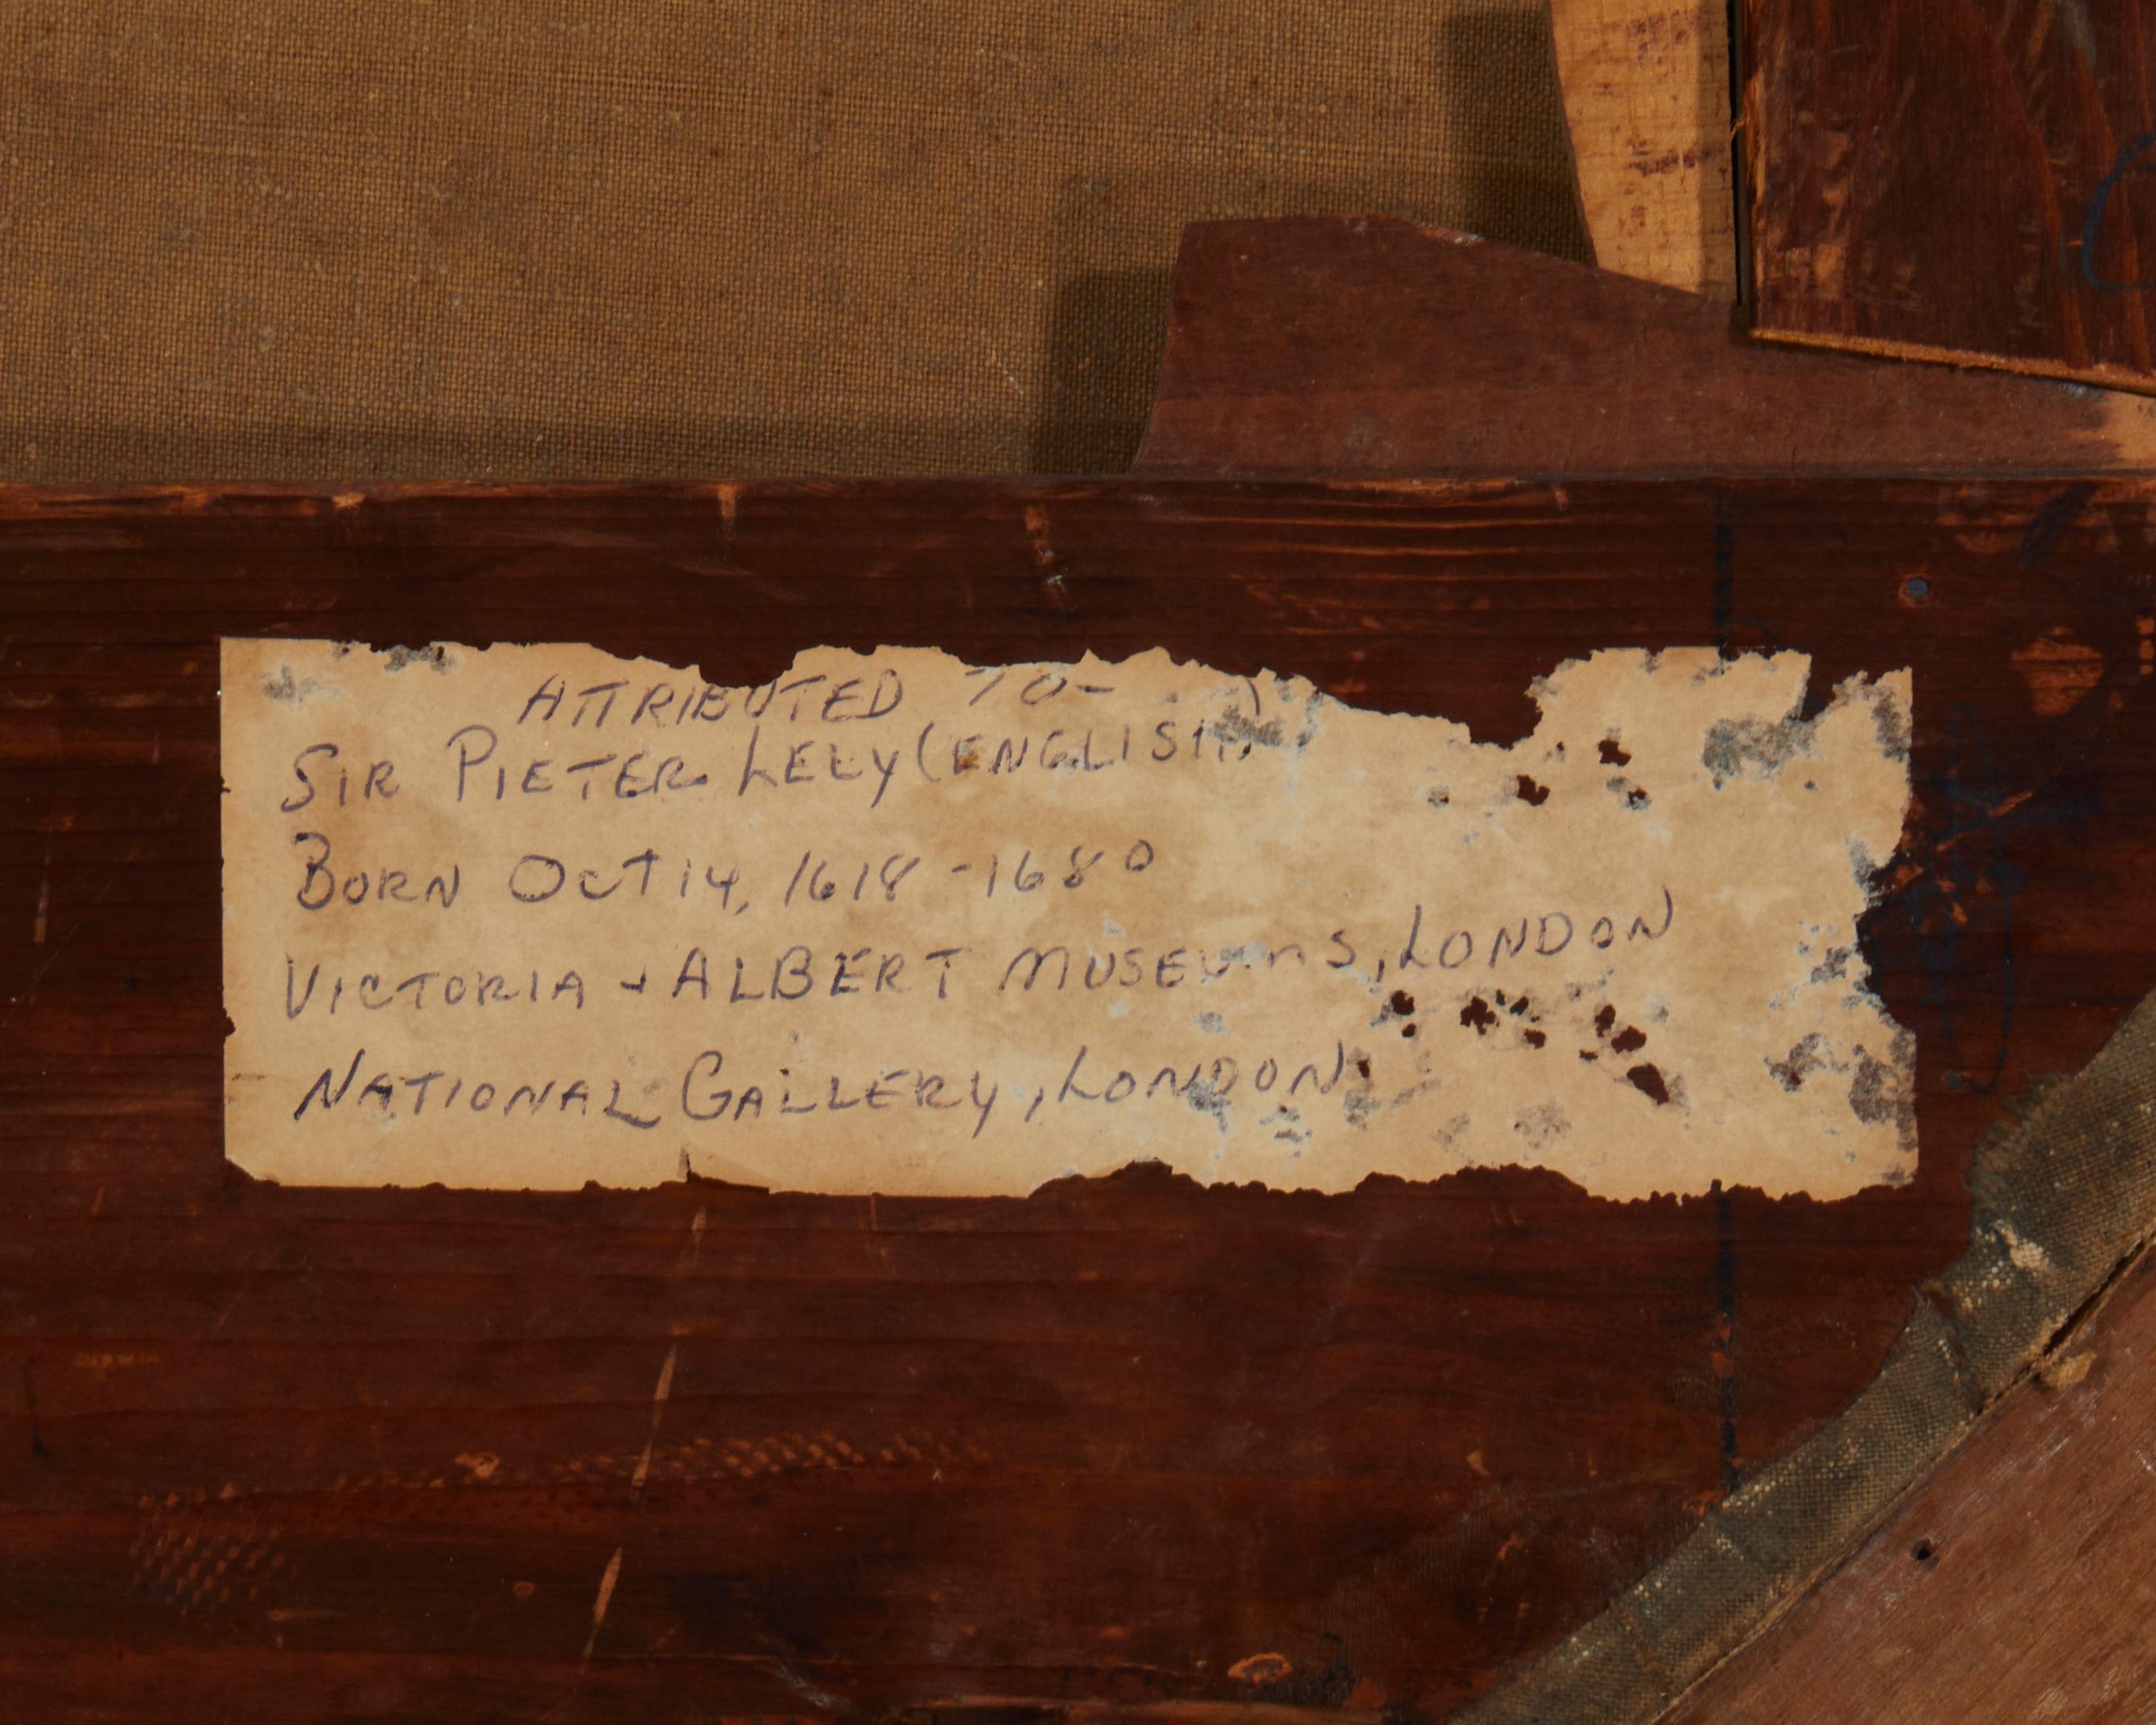 ATTRIBUTED TO-
SIR PIETER LELY (ENGLISH)
BORN OCT 14, 1618 - 1680
VICTORIA + ALBERT MUSEUMS, LONDON
NATIONAL GALLERY, LONDON